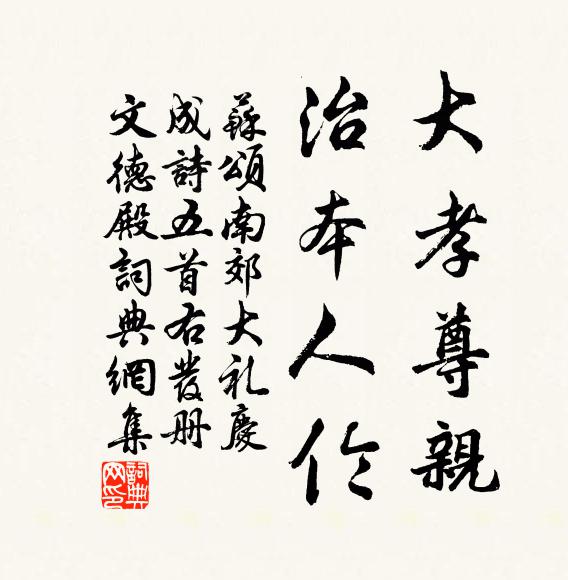 大孝尊親
治本人伦
蘇頌南郊大礼慶
成詩五首右發册
文德殿詞典網集
詞典
网印